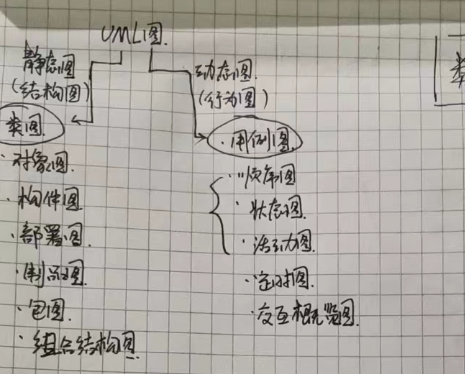 UML图
静态图
(结构图)
类图
·对象图
·构件图
·部署图
·制品图
·包图
·组合结构图
动态图
(行为图)
·用例图
·顺序图
·状态图
·活动图
·定时图
·交互概览图
类